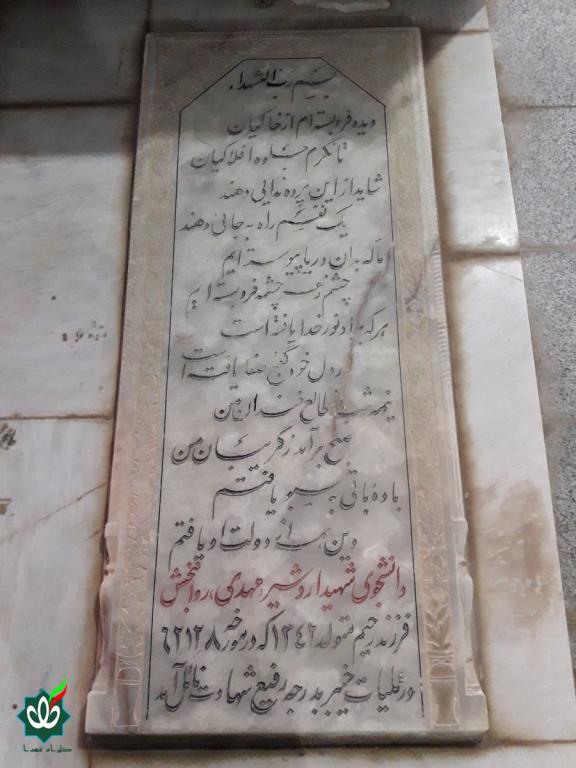 بسم رب الشهداء
دیده فروبسته ام از خاکیان
تا نگرم جلوه افلاکیان
شاید از این پرده ندایی دهند
یک نفسم راه به جایی دهند
ما که بدان دریا پیوسته ایم
چشم ز هر چشمه فروبسته ایم
هر که بدو نور خدا یافته است
در دل خود گنج صفا یافته است
نیمه شب طالع خندان من
صبح برآمد ز گریبان من
باده باقی به سبو یافتم
وین همه از دولت او یافتم
دانشجوی شهید اردشیر (مهدی) روانبخش
فرزند رحیم متولد ۱۳۴۲ که در مورخه ۶۲/۱۲/۸
در عملیات خیبر بدرجه رفیع شهادت نائل آمد
گلزار شهدا